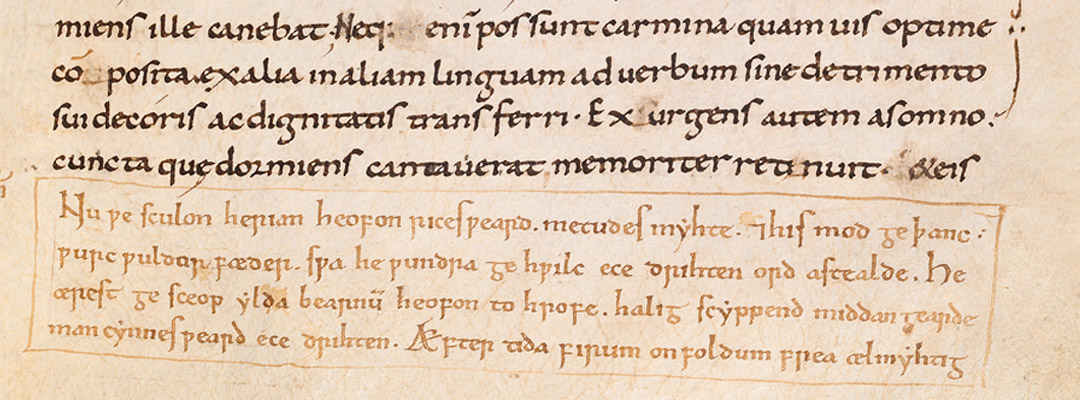 miens ille canebat. Neq; eni̅ possunt carmina quamuis optime
co̅posita. ex alia in aliam linguam ad uerbum sine detrimento
sui decoris ac dignitatis transferri. Exurgens autem a somno.
cuncta quę dormiens cantauerat memoriter retinuit. & eis
Nu ƿe sculon herian heofon rices ƿeard. metudes myhte. ⁊ his mod geþanc.
ƿurc ƿuldor fæder. sƿa he ƿundra gehƿilc ece drihten ord astealde. He
ærest gesceop ylda bearnu̅ heofon to hrofe. halig scyppend middangearde
mancynnes ƿeard ece drihten. Æfter tida firum on foldum frea ælmyhtig